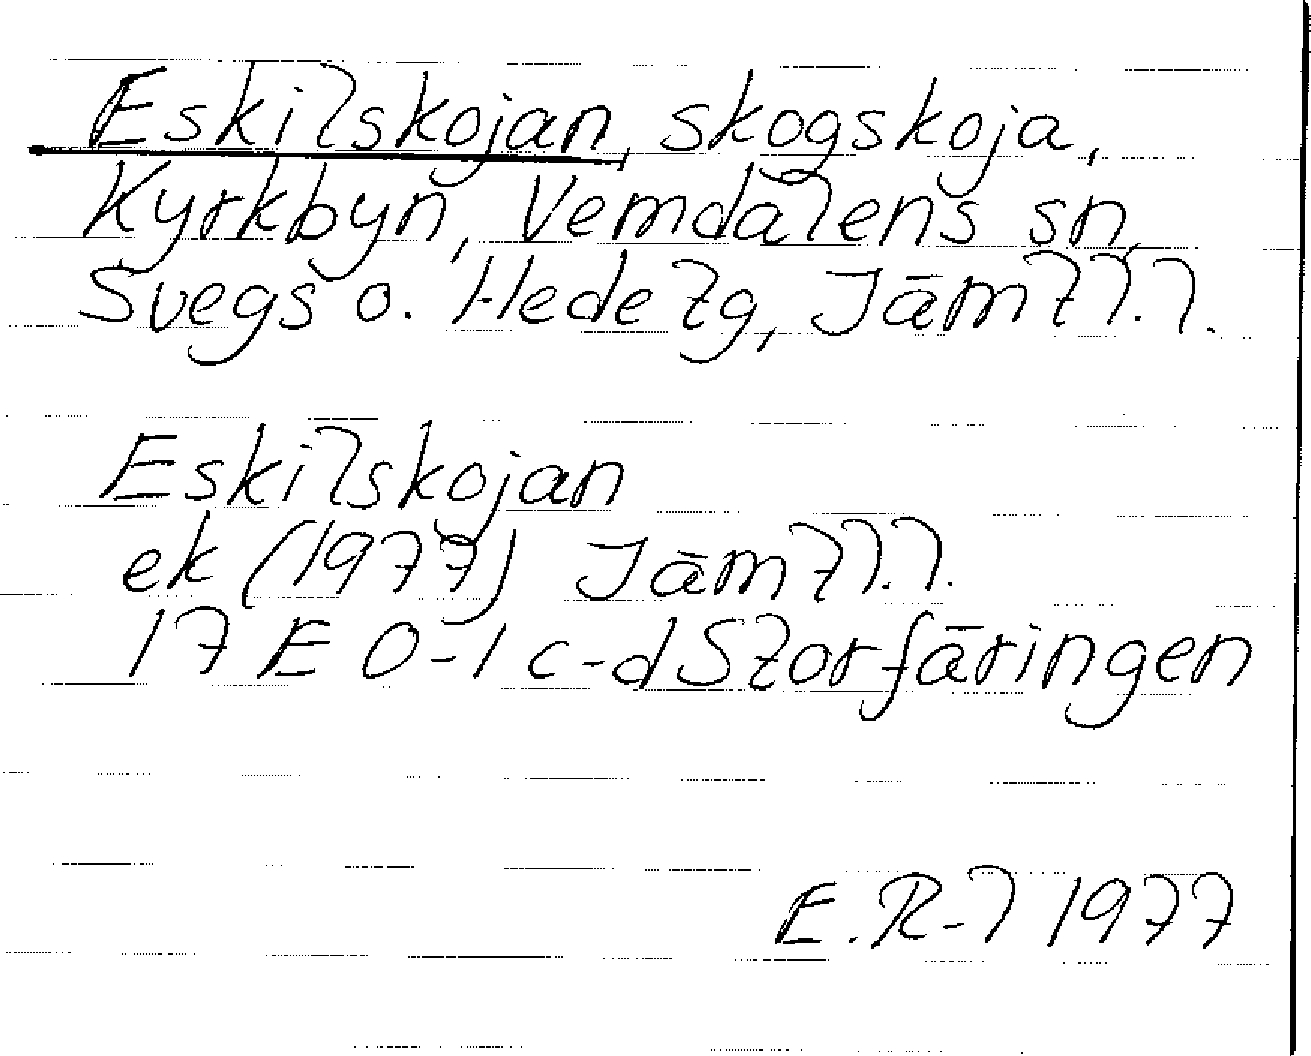 Eskilskojan, skogskoja,
Kyrkbyn, Vemdalens sn,
Svegs o. Hede tg, Jämtl.l.
Eskilskojan
ek (1977) Jämtl.l.
17 E 0-1 c-d Storfäringen
E.R-l 1977